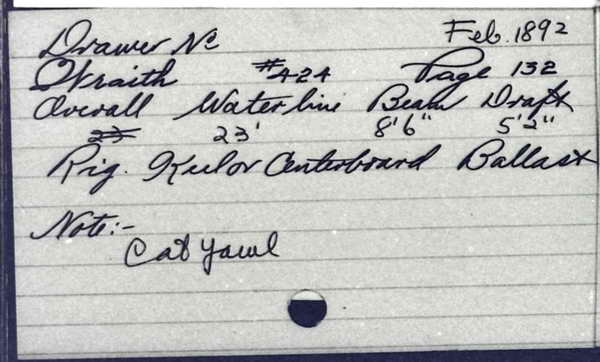 Drawer No Feb. 1892
Wraith #424 Page 132
Overall Waterline Beam Draft
23 23' 8'6" 5'2"
Rig. Keel or Centerboard Ballast
Note:-
Cat Yawl